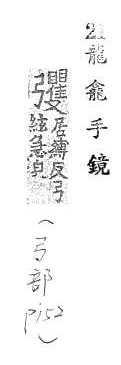 21 龍龕手鏡
彏居縛反弓
絃急皃
(弓部 p152)